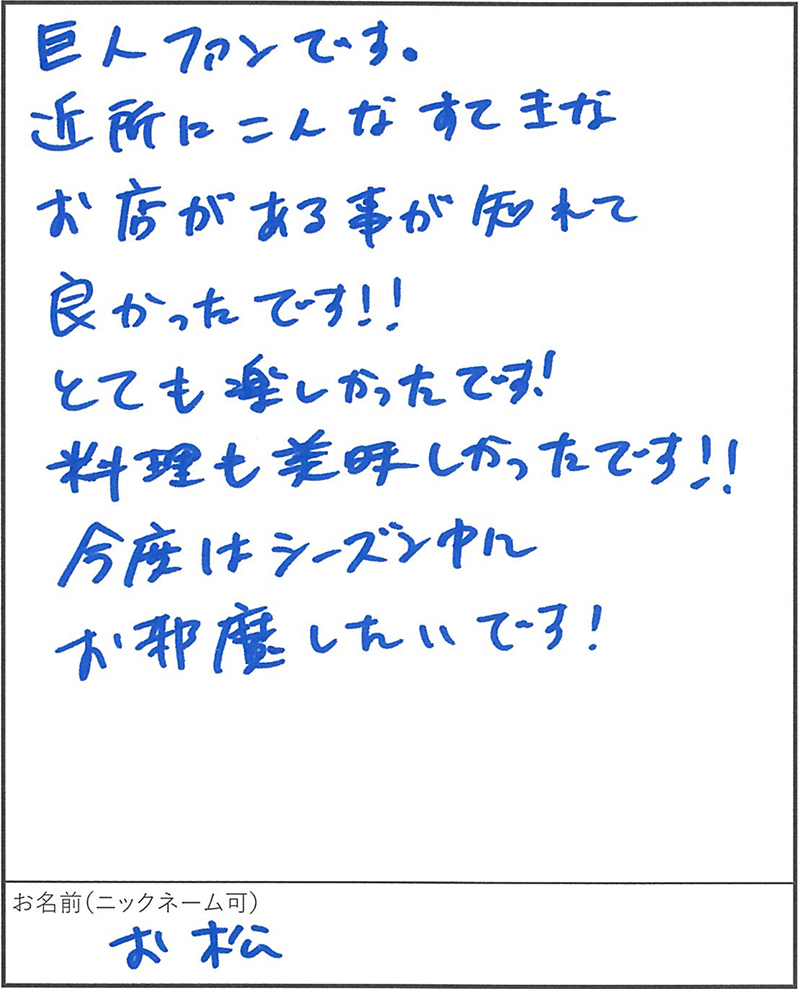 巨人ファンです。
近所にこんなすてきな
お店がある事が知れて
良かったです!!
とても楽しかったです!
料理も美味しかったです!!
今度はシーズン中に
お邪魔したいです!
お名前(ニックネーム可)
お松